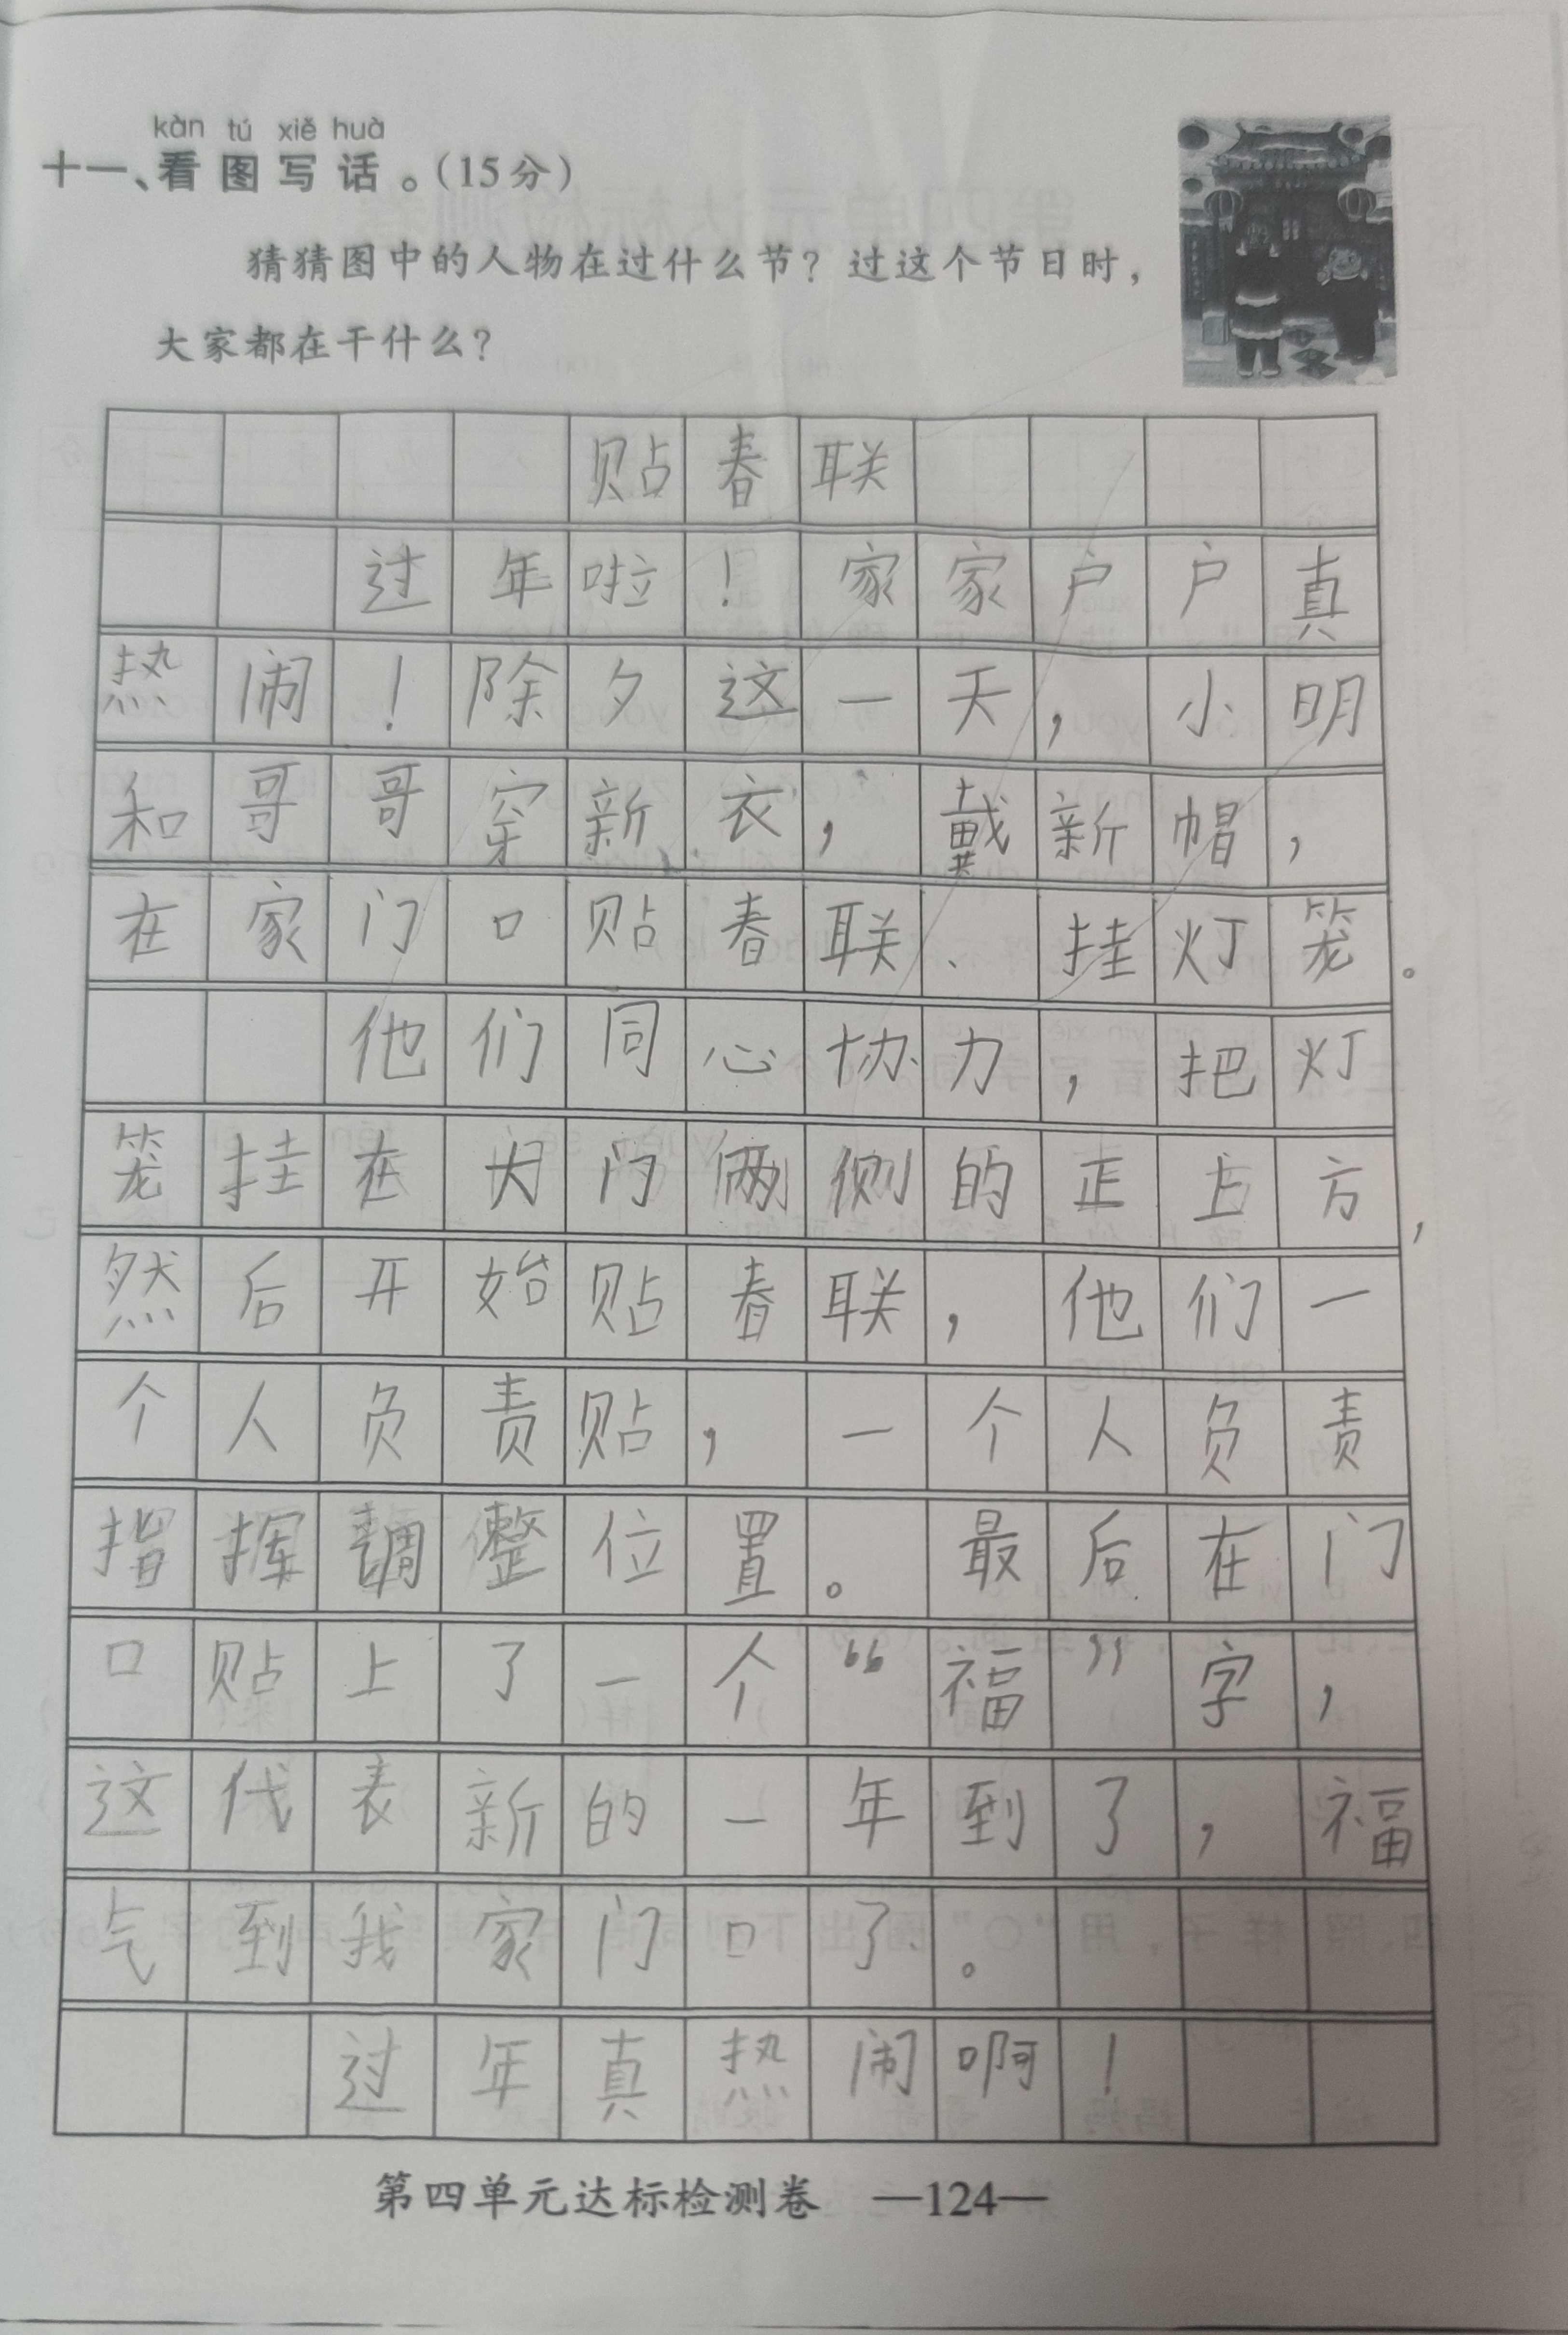 kàn tú xiě huà
十一、看图写话。(15分)
猜猜图中的人物在过什么节?过这个节日时,
大家都在干什么?
贴春联
过年啦!家家户户真
热闹!除夕这一天,小明
和哥哥穿新衣,戴新帽,
在家门口贴春联、挂灯笼。
他们同心协力,把灯
笼挂在大门两侧的正上方,
然后开始贴春联,他们一
个人负责贴,一个人负责
指挥调整位置。最后在门
口贴上了一个“福”字,
这代表新的一年到了,福
气到我家门口了。
过年真热闹啊!
第四单元达标检测卷 —124—